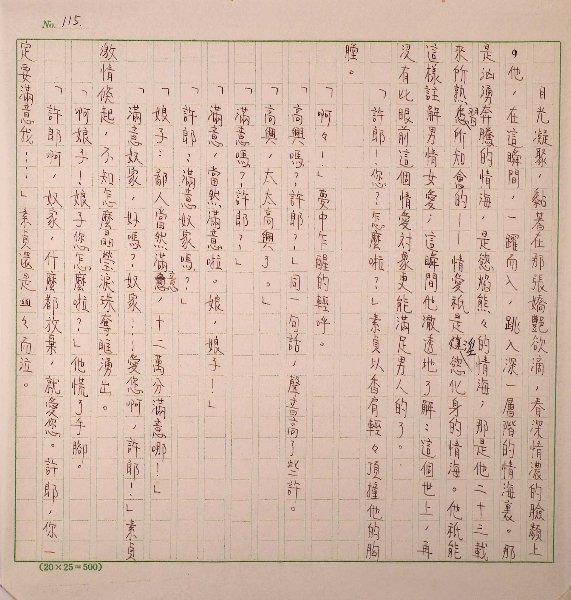 No. 115.
目光凝聚，黏著在那張嬌艷欲滴，春深情濃的臉頰上
。他，在這瞬間，一躍而入，跳入深一層階的情海裏。那
是洶湧奔騰的情海，是慾焰熊々的情海；那是他二十三載
來所熟習所知會的——情愛祇是淫慾化身的情海。他祇能
這樣註解男情女愛，這瞬間他澈透地了解：這個世上，再
沒有比眼前這個情愛對象更能滿足男人的了。
「許郎！您？怎麼啦？」素貞以香肩輕々頂撞他的胸
膛。
「啊々！」夢中乍醒的輕呼。
「高興嗎？許郎？」同一句話，聲音高了些許。
「高興，太太高興了。」
「滿意嗎？許郎？」
「滿意，當然滿意啦。娘，娘子！」
「許郎：滿意奴家嗎？」
「娘子：鄙人當然滿意，十二萬分滿意哪！」
「滿意奴家，好嗎？奴家…！愛您啊，許郎！」素貞
激情倏起，不知怎麼晶瑩淚珠奪眶湧出。
「啊娘子！娘子您怎麼啦？」他慌了手腳。
「許郎啊，奴家，什麼都放棄，就愛您。許郎，你一
定要滿意我……」素貞還是呬々而泣。
(20×25=500)